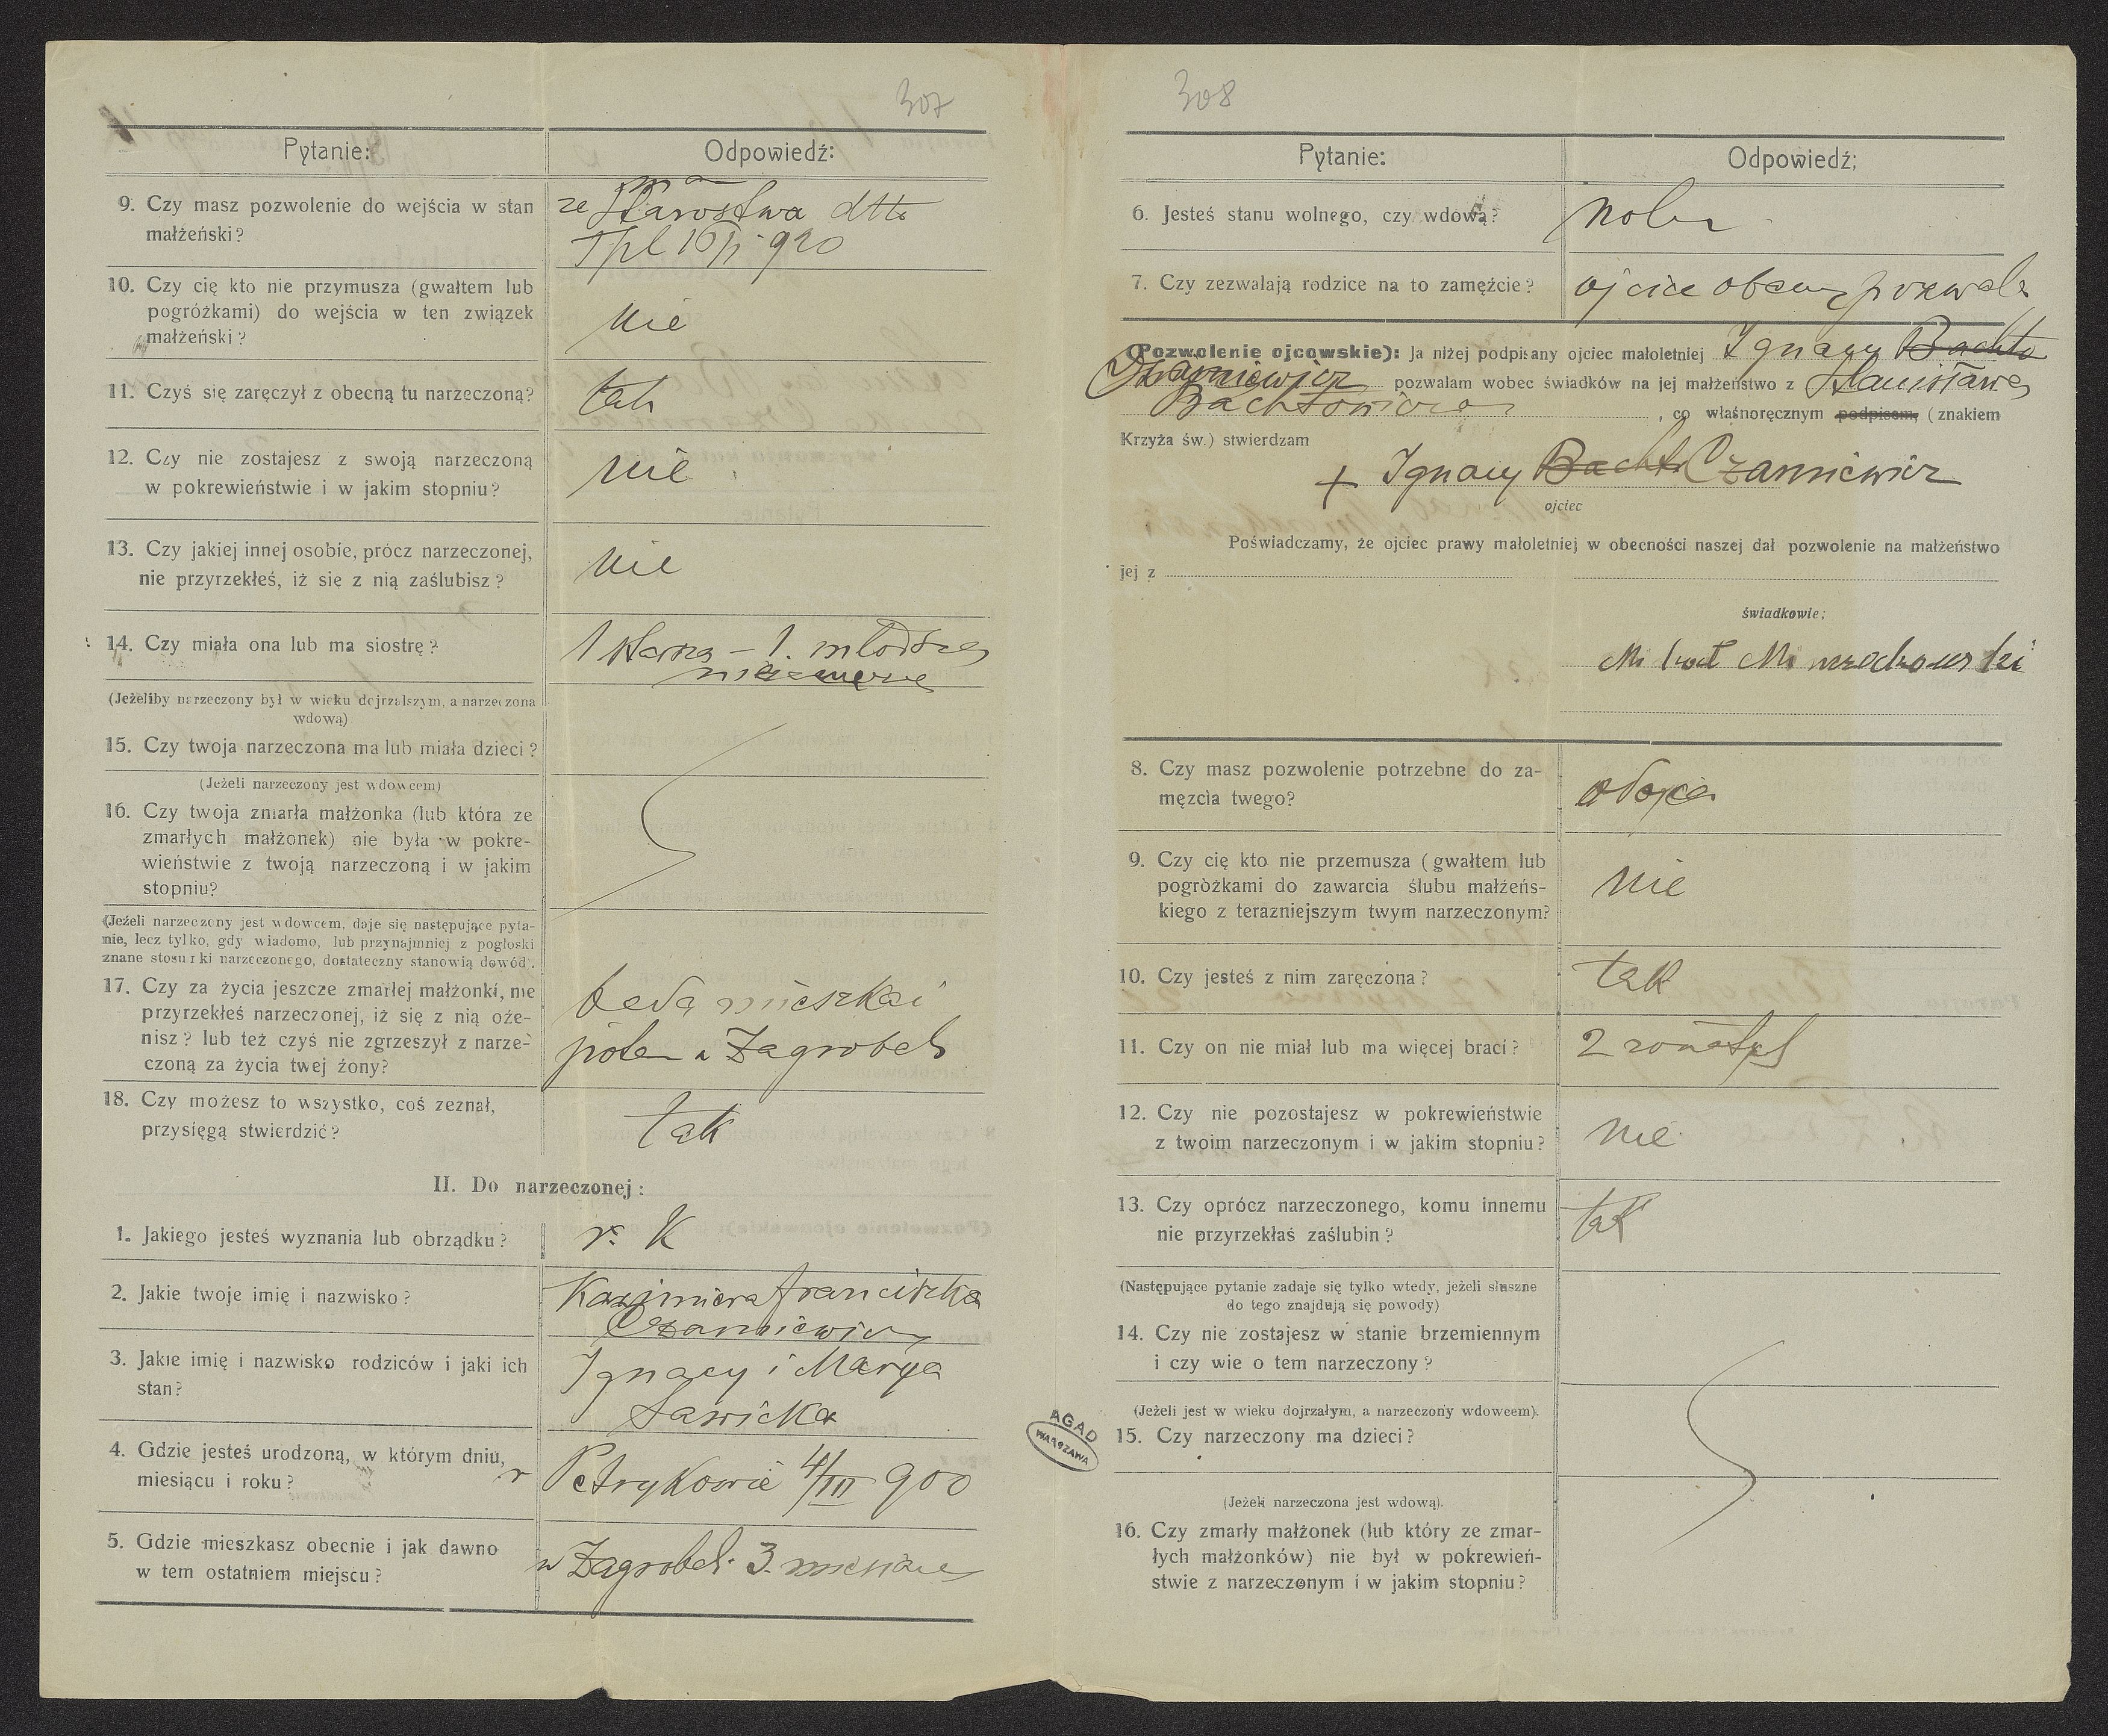 307
Pytanie:
Odpowiedź:
9. Czy masz pozwolenie do wejścia w stan
małżeński?
ze Starostwa dtto
Tpl 16/ 920
10. Czy cię kto nie przymusza (gwałtem lub
pogróżkami) do wejścia w ten związek
małżeński?
nie
11. Czyś się zaręczył z obecną tu narzeczoną?
tak
12. Czy nie zostajesz z swoją narzeczoną
w pokrewieństwie i w jakim stopniu?
nie
13. Czy jakiej innej osobie, prócz narzeczonej,
nie przyrzekłeś, iż się z nią zaślubisz?
nie
14. Czy miała ona lub ma siostrę?
1 starsza – 1. młodsza
(Jeżeliby narzeczony był w wieku dojrzalszym, a narzeczona
wdową)
15. Czy twoja narzeczona ma lub miała dzieci?
(Jeżeli narzeczony jest wdowcem)
16. Czy twoja zmarła małżonka (lub która ze
zmarłych małżonek) nie była w pokre-
wieństwie z twoją narzeczoną i w jakim
stopniu?
(Jeżeli narzeczony jest wdowcem, daje się następujące pyta-
nie, lecz tylko, gdy wiadomo, lub przynajmniej z pogłoski
znane stosunki narzeczonego, dostateczny stanowią dowód).
17. Czy za życia jeszcze zmarłej małżonki, nie
przyrzekłeś narzeczonej, iż się z nią oże-
nisz? lub też czyś nie zgrzeszył z narze-
czoną za życia twej żony?
będą mieszkać
potem w Zagrobeli
18. Czy możesz to wszystko, coś zeznał,
przysięgą stwierdzić?
tak
II. Do narzeczonej:
1. Jakiego jesteś wyznania lub obrządku?
r. K
2. Jakie twoje imię i nazwisko?
Kazimiera Franciszka
Czarniewicz
3. Jakie imię i nazwisko rodziców i jaki ich
stan?
Ignacy i Marya
Sawicka
4. Gdzie jesteś urodzoną, w którym dniu,
miesiącu i roku?
Petrykowie 4/III 900
5. Gdzie mieszkasz obecnie i jak dawno
w tem ostatniem miejscu?
w Zagrobeli 3. miesiące
AGAD
WARSZAWA
308
Pytanie:
Odpowiedź:
6. Jesteś stanu wolnego, czy wdową?
wolna
7. Czy zezwalają rodzice na to zamęźcie?
ojciec obecny pozwala
(Pozwolenie ojcowskie): Ja niżej podpisany ojciec małoletniej Ignacy Bachta
Czarniewicz pozwalam wobec świadków na jej małżeństwo z Stanisławem
Bachtowicza, co własnoręcznym podpisem, (znakiem
Krzyża św.) stwierdzam
+ Ignacy Bachta Czarniewicz
ojciec
Poświadczamy, że ojciec prawy małoletniej w obecności naszej dał pozwolenie na małżeństwo
jej z
świadkowie:
8. Czy masz pozwolenie potrzebne do za-
męzcia twego?
od ojca
9. Czy cię kto nie przemusza (gwałtem lub
pogróżkami do zawarcia ślubu małżeńs-
kiego z terazniejszym twym narzeczonym?
nie
10. Czy jesteś z nim zaręczona?
tak
11. Czy on nie miał lub ma więcej braci?
2 żonatych
12. Czy nie pozostajesz w pokrewieństwie
z twoim narzeczonym i w jakim stopniu?
nie
13. Czy oprócz narzeczonego, komu innemu
nie przyrzekłaś zaślubin?
tak
(Następujące pytanie zadaje się tylko wtedy, jeżeli słuszne
do tego znajdują się powody)
14. Czy nie zostajesz w stanie brzemiennym
i czy wie o tem narzeczony?
(Jeżeli jest w wieku dojrzałym, a narzeczony wdowcem).
15. Czy narzeczony ma dzieci?
(Jeżeli narzeczona jest wdową).
16. Czy zmarły małżonek (lub który ze zmar-
łych małżonków) nie był w pokrewień-
stwie z narzeczonym i w jakim stopniu?